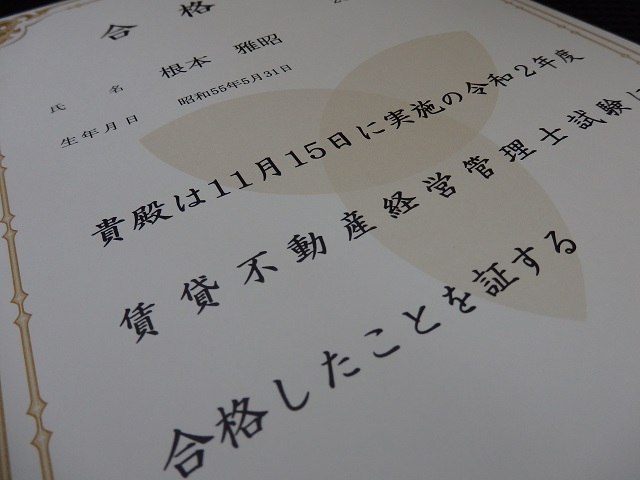 合格
氏名 根本 雅昭
生年月日 昭和55年5月31日
貴殿は11月15日に実施の令和2年度
賃貸不動産経営管理士試験に
合格したことを証する